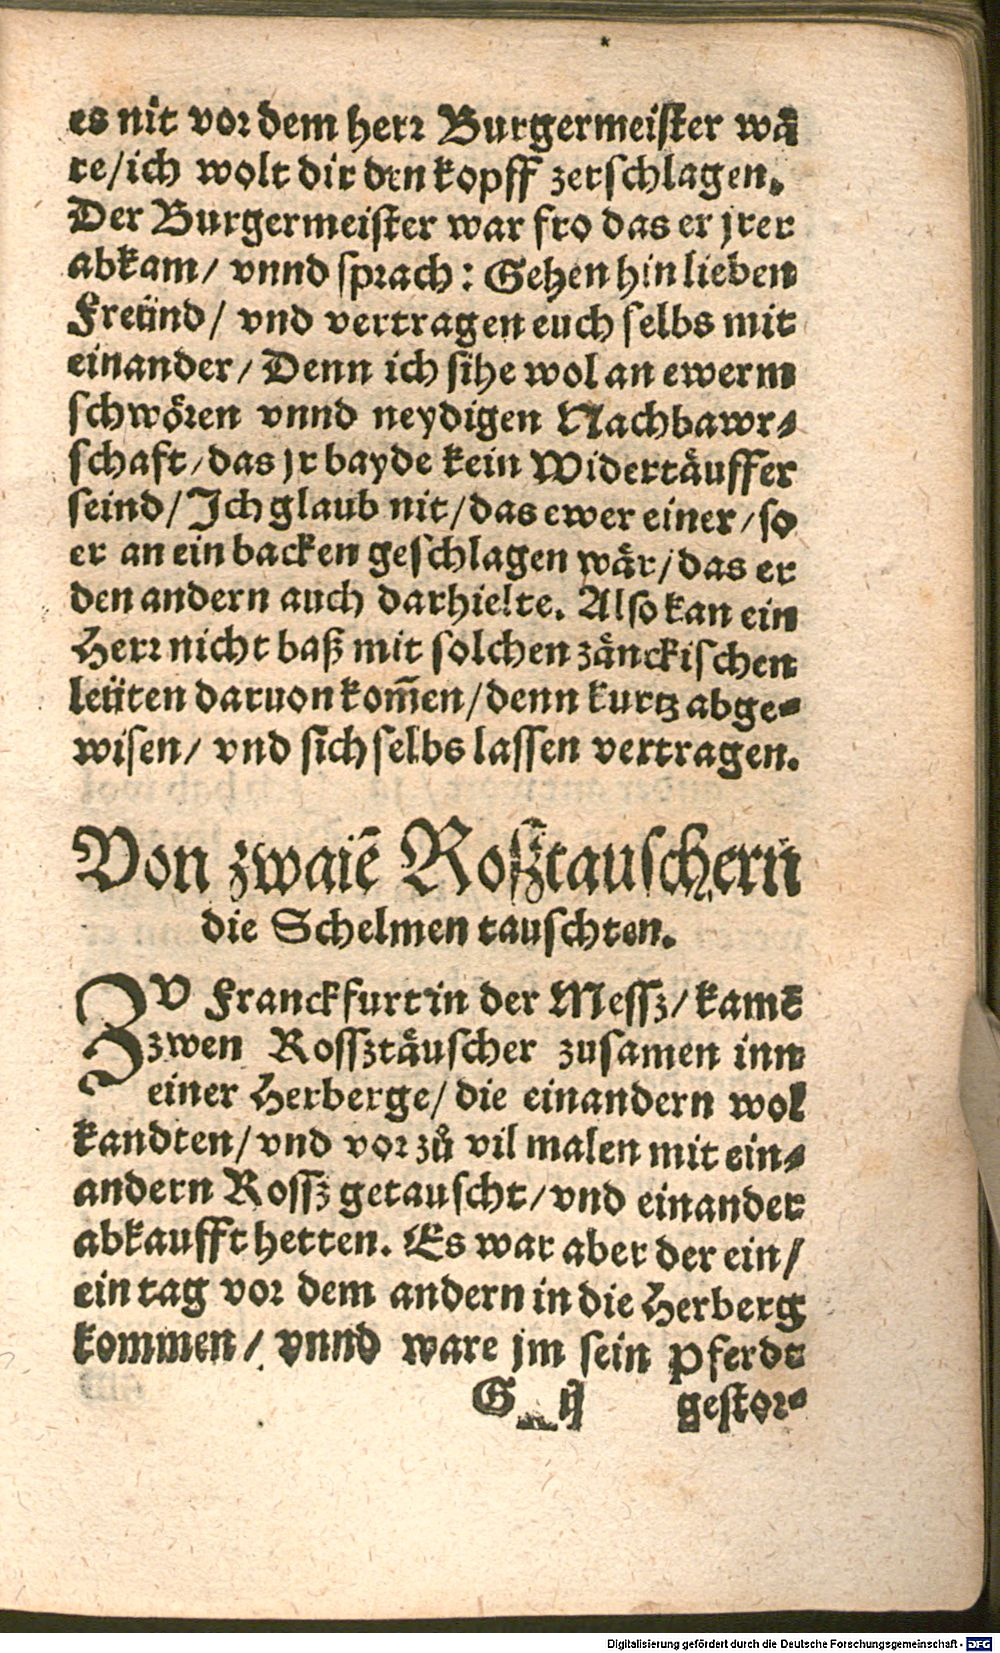 es nit vor dem herr Burgermeister wå
re/ich wolt dir den kopff zerschlagen.
Der Burgermeister war fro das er jrer
abkam/ vnnd sprach: Gehen hin lieben
Freünd/ vnd vertragen euch selbs mit
einander/ Denn ich sihe wol an ewerm
schwören vnnd neydigen Nachbawr⸗
schaft/das jr bayde kein Widertäuffer
seind/Ich glaub nit/das ewer einer/so
er an ein backen geschlagen wär/das er
den andern auch darhielte. Also kan ein
Herr nicht baß mit solchen zänckischen
leüten daruon kom̃en/denn kurtz abge⸗
wisen/ vnd sich selbs lassen vertragen.
Von zwaiẽ Roßtauschern
die Schelmen tauschten.
ZV Franckfurt in der Messz/ kamẽ
zwen Rossztäuscher zusamen inn
einer Herberge/ die einandern wol
kandten/ vnd vor zů vil malen mit ein⸗
andern Rossz getauscht/vnd einander
abkaufft hetten. Es war aber der ein/
ein tag vor dem andern in die Herberg
kommen/ vnnd ware jm sein Pferde
G ij gestor⸗
Digitalisierung gefördert durch die Deutsche Forschungsgemeinschaft - DFG